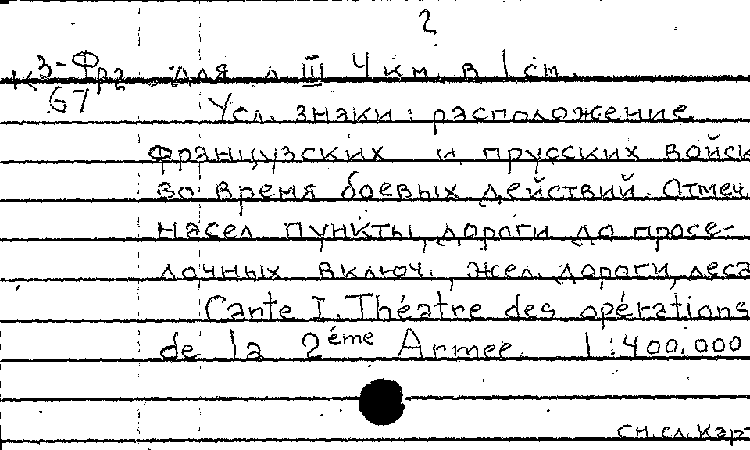 2
К 3-Фрз для л III 4 км. в 1 см.
67
Усл. знаки: расположение
французских и прусских войск
во время боевых действий. Отмеч.
насел. пункты, дороги до просе-
лочных включ., жел. дороги, леса
Carte I. Théatre des opérations
de la 2ème Armee. 1:400.000
см.сл.карт